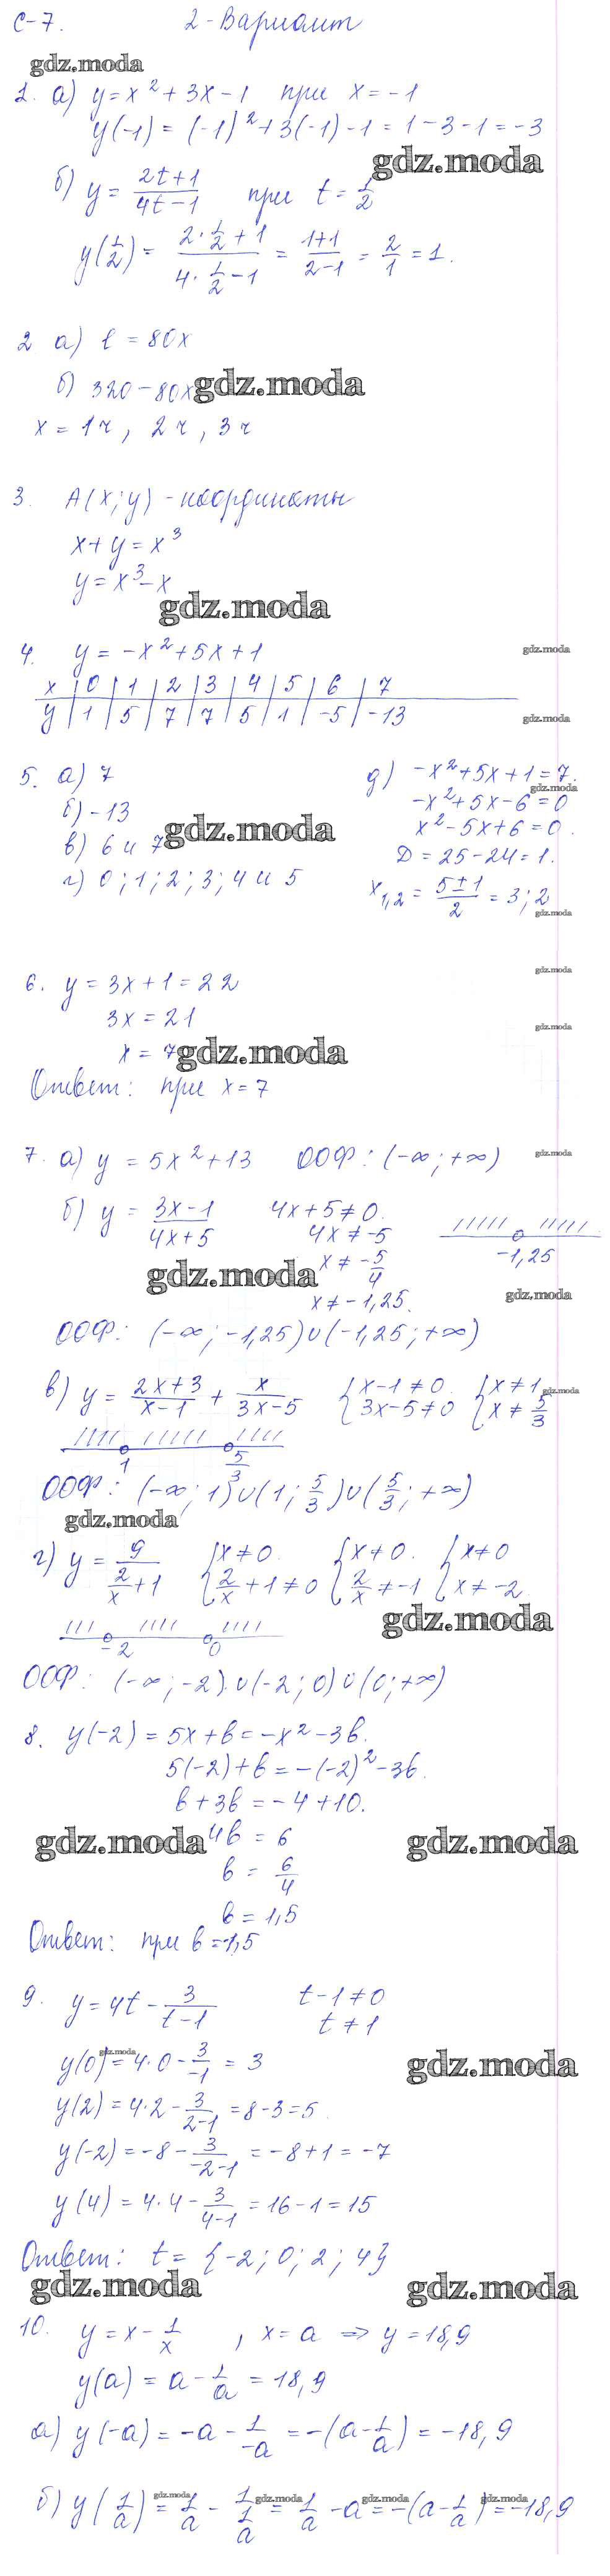 С-7. 2-Вариант
gdz.moda
1. а) y = x² + 3x - 1 при x = -1
y(-1) = (-1)² + 3(-1) - 1 = 1 - 3 - 1 = -3
gdz.moda
б) y = (2t+1)/(4t-1) при t = 1/2
y(1/2) = (2·1/2+1)/(4·1/2-1) = (1+1)/(2-1) = 2/1 = 1.
2 а) l = 80x
б) 320-80x gdz.moda
x = 1ч, 2ч, 3ч
3. A(x; y) - координаты
x + y = x³
y = x³ - x
gdz.moda
4. y = -x² + 5x + 1 gdz.moda
x | 0 | 1 | 2 | 3 | 4 | 5 | 6 | 7
y | 1 | 5 | 7 | 7 | 5 | 1 | -5 | -13 gdz.moda
5. а) 7
б) -13
в) 6 и 7 gdz.moda
г) 0; 1; 2; 3; 4 и 5
д) -x² + 5x + 1 = 7.
gdz.moda
-x² + 5x - 6 = 0
x² - 5x + 6 = 0.
D = 25 - 24 = 1.
x₁,₂ = (5±1)/2 = 3; 2
gdz.moda
gdz.moda
6. y = 3x + 1 = 22
3x = 21 gdz.moda
x = 7 gdz.moda
Ответ: при x = 7
7. а) y = 5x² + 13 ООФ: (-∞; +∞) gdz.moda
б) y = (3x-1)/(4x+5) 4x + 5 ≠ 0.
4x ≠ -5
-1,25
gdz.moda x ≠ -5/4
x ≠ -1,25. gdz.moda
ООФ: (-∞; -1,25)∪(-1,25; +∞)
в) y = (2x+3)/(x-1) + x/(3x-5) {x-1 ≠ 0. {x ≠ 1 gdz.moda
{3x-5 ≠ 0 {x ≠ 5/3
1 5/3
ООФ: (-∞; 1)∪(1; 5/3)∪(5/3; +∞)
gdz.moda
г) y = 9/(2/x + 1) {x ≠ 0. {x ≠ 0. {x ≠ 0
{2/x + 1 ≠ 0 {2/x ≠ -1 {x ≠ -2
gdz.moda
-2 0
ООФ: (-∞; -2)∪(-2; 0)∪(0; +∞)
8. y(-2) = 5x + b = -x² - 3b.
5(-2) + b = -(-2)² - 3b.
b + 3b = -4 + 10.
gdz.moda 4b = 6 gdz.moda
b = 6/4
b = 1,5
Ответ: при b = 1,5
9. y = 4t - 3/(t-1) t - 1 ≠ 0
t ≠ 1
gdz.moda
y(0) = 4·0 - 3/-1 = 3 gdz.moda
y(2) = 4·2 - 3/(2-1) = 8 - 3 = 5.
y(-2) = -8 - 3/(-2-1) = -8 + 1 = -7
y(4) = 4·4 - 3/(4-1) = 16 - 1 = 15
Ответ: t = {-2; 0; 2; 4}
gdz.moda gdz.moda
10. y = x - 1/x, x = a ⇒ y = 18,9
y(a) = a - 1/a = 18,9
а) y(-a) = -a - 1/-a = -(a - 1/a) = -18,9
gdz.moda gdz.moda gdz.moda gdz.moda
б) y(1/a) = 1/a - 1/(1/a) = 1/a - a = -(a - 1/a) = -18,9